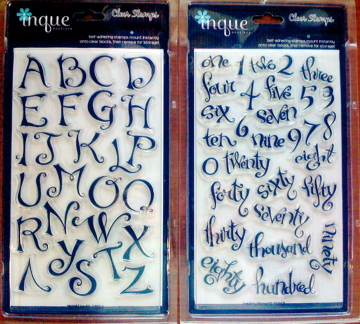 inque
Clear Stamps
Self-adhering stamps mount instantly
onto clear blocks, then remove for storage!
A B C D
E F G H
I T K L P
U M O Q
R N W X
Y S T Z
inque
Clear Stamps
Self-adhering stamps mount instantly
onto clear blocks, then remove for storage!
one 1 two 2 three
four 4 five 5 3
six seven
ten 6 nine 9 7 8
0 twenty eight
forty sixty fifty
seventy
thirty ninety
thousand
eighty hundred